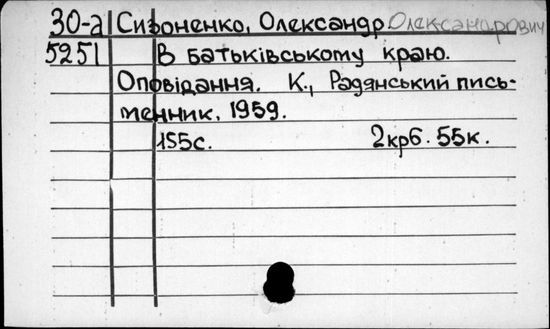 30-а Сизоненко, Олександр Олександрович
5251 В батьківському краю.
Оповідання. К., Радянський пись-
менник, 1959.
155с. 2крб. 55к.